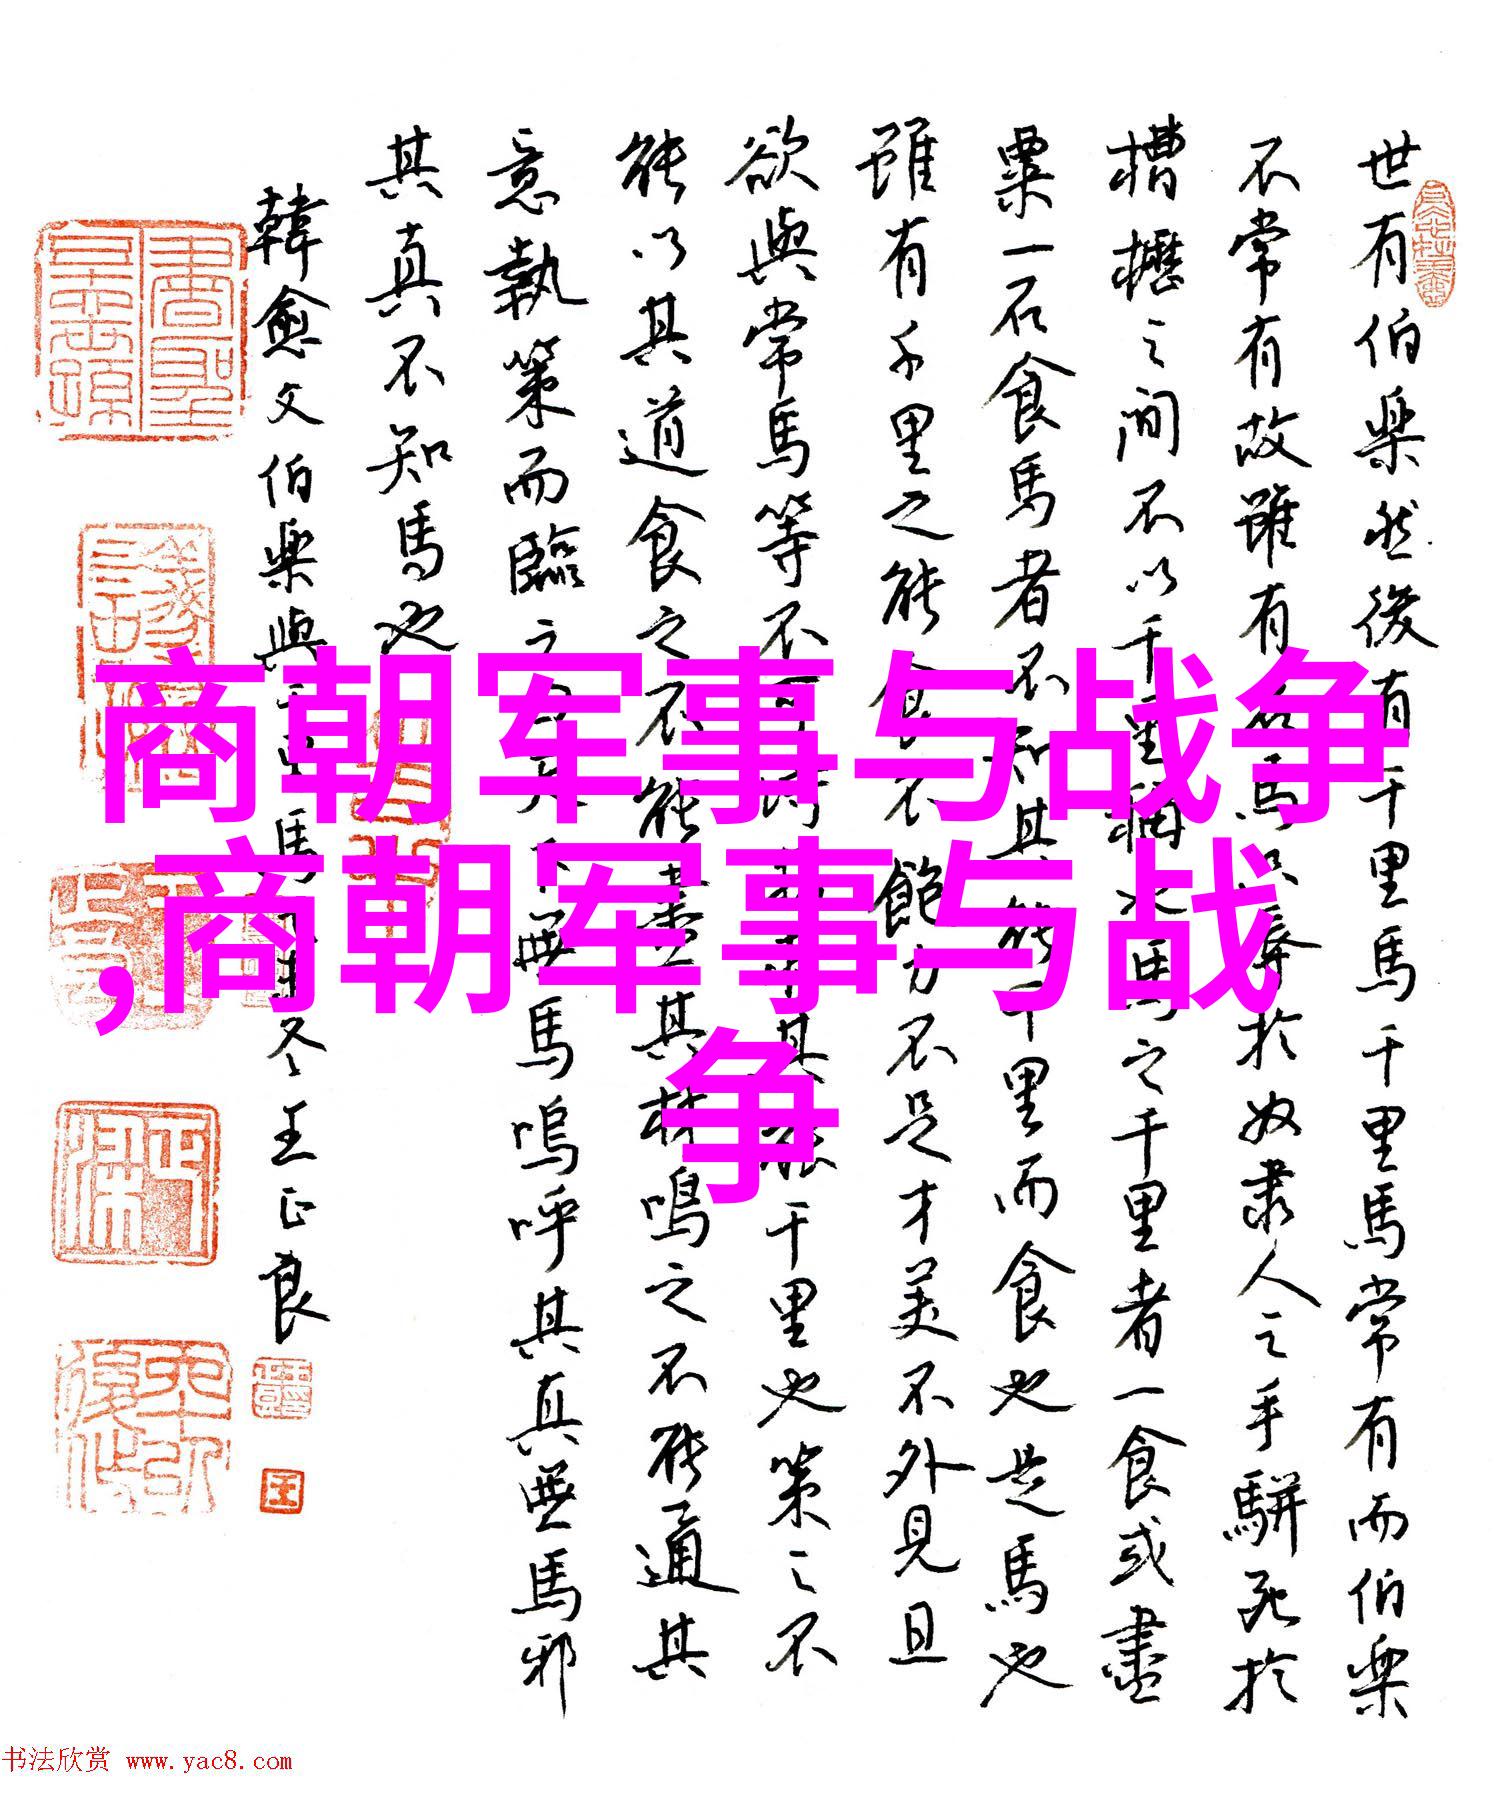 世有伯樂然後有千里馬千里馬常有而伯樂
不常有故雖有名馬只辱於奴隸人之手駢死於
槽櫪之間不以千里稱也馬之千里者一食或盡
粟一石食馬者不知其能千里而食也是馬也
雖有千里之能食不飽力不足才美不外見且
欲與常馬等不可得求其能千里也策之不
能以其道食之不能盡其材鳴之不能通其
意執策而臨之曰天下無馬嗚呼其真無馬邪
其真不知馬也
韓愈文伯樂與千里馬冬王正良
商朝军事与战争
,商朝军事与战
争
书法欣赏 www.yac8.com